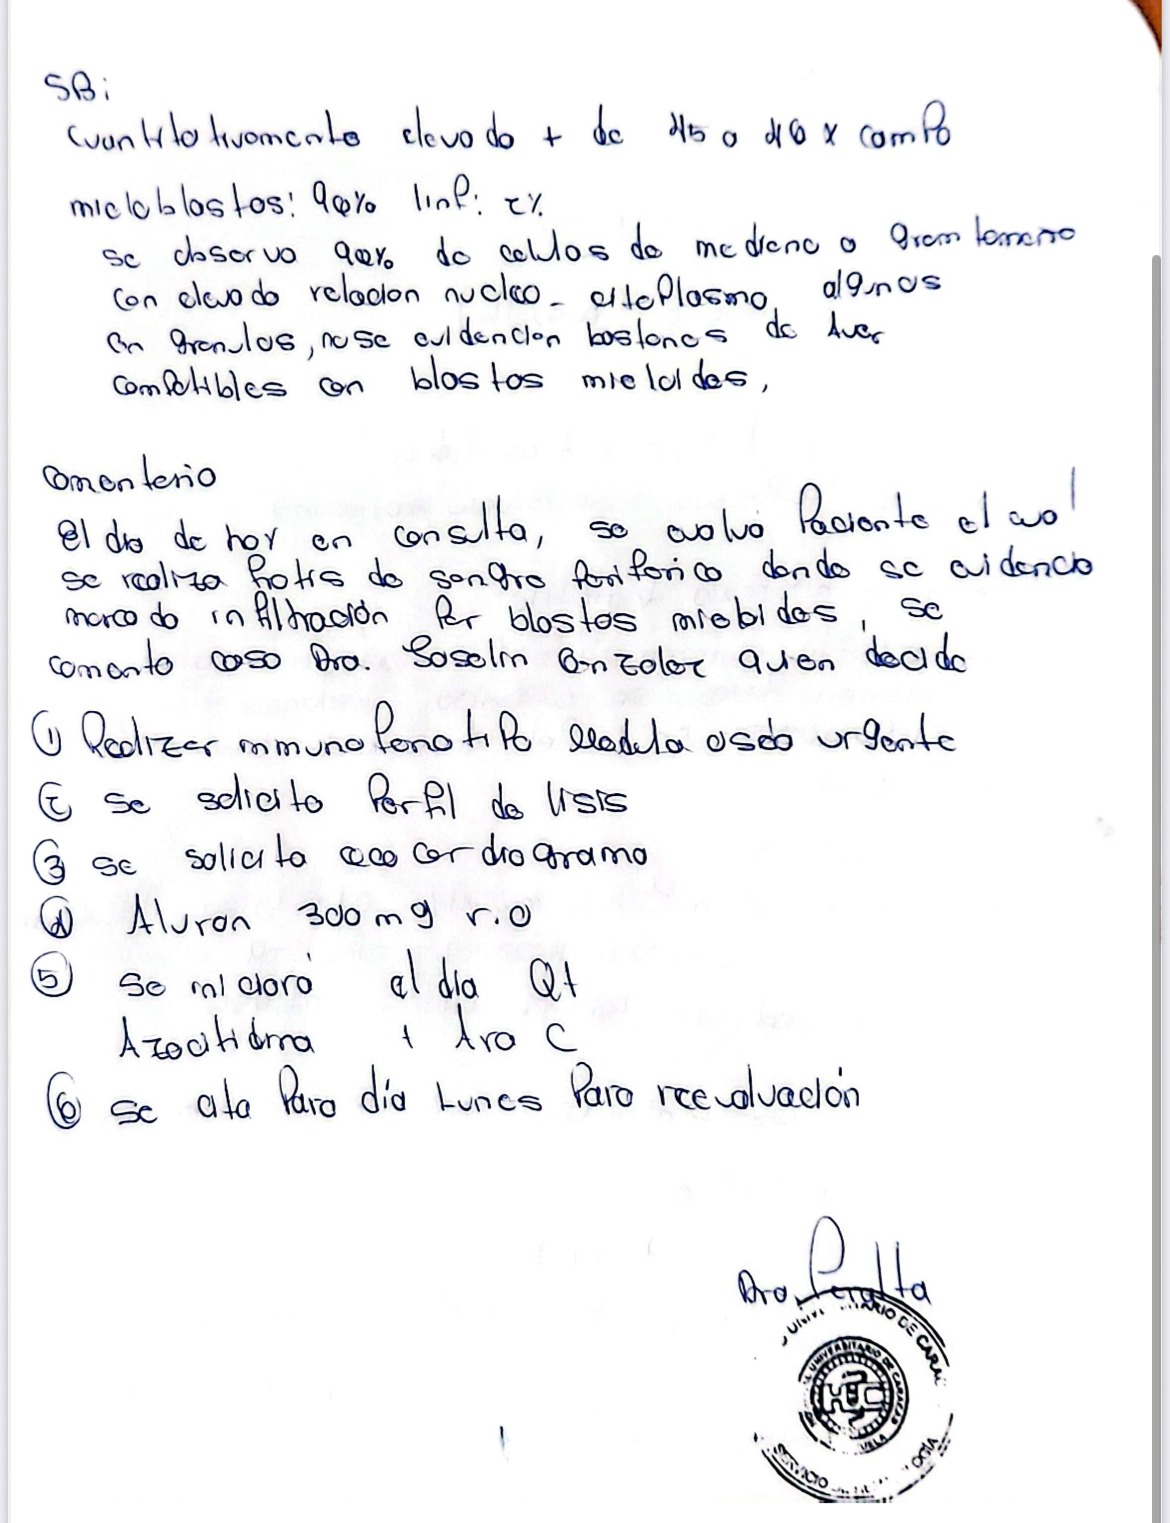 SB:
Cuantitativamente elevado + de 45 a 40 x campo
mieloblastos: 90% linf: 2%
se observa 90% de celulas de mediano a gran tamaño
con elevado relacion nucleo - citoplasmo, algunos
con granulos, no se evidencion bastones de Auer
compatibles con blastos mieloides,
Comentario
el dia de hoy en consulta, se evaluó Paciente el cual
se realiza frotis de sangre periferico donde se evidencia
marcado infiltración por blastos mieloides, se
comento caso Dra. quien decide
① Realizar inmunofenotipo Medula osea urgente
② se solicito Perfil de lisis
③ se solicita ecocardiograma
④ Aluron 300 mg v.o
⑤ Se iniciara el dia Qt
Azacitidina + Ara C
⑥ se cita Para día Lunes Para reevaluación
Dra. Peralta
UNIVERSITARIO DE CARACAS
SERVICIO